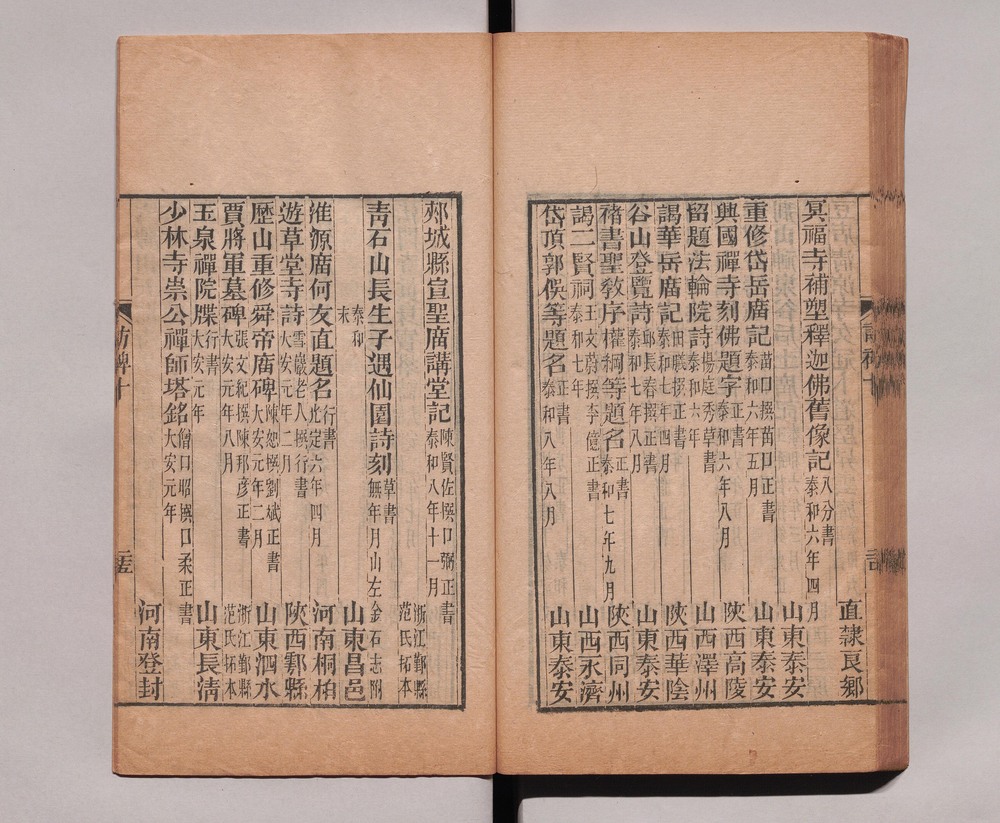 冥福寺補塑釋迦佛舊像記八分書泰和六年四月 直隸良鄉
重修岱岳廟記苗口撰苗口正書泰和六年五月 山東泰安
興國禪寺刻佛題字正書泰和六年八月 山東泰安
留題法輪院詩楊庭秀草書泰和六年 陝西高陵
謁華岳廟記田曦撰正書泰和七年四月 山西澤州
谷山登覽詩邱長春撰正書泰和七年八月 陝西華陰
褚書聖敎序權 等題名正書泰和七年九月 山東泰安
謁二賢祠王文蔚撰李億正書泰和七年 陝西同州
岱頂郭俁等題名正書泰和八年八月 山西永濟
山東泰安
郟城縣宣聖廟講堂記陳賢佐撰口弼正書泰和八年十一月 浙江鄞縣范氏拓本
靑石山長生子遇仙園詩刻草書無年月山左金石志附泰和末 山東昌邑
淮源廟何友直題名行書光定六年四月 河南桐柏
遊草堂寺詩雪巖老人撰行書大安元年二月 陝西鄠縣
歷山重修舜帝廟碑陳恕撰劉斌正書大安元年二月 山東泗水
賈將軍墓碑張文紀撰陳邦彥正書大安元年八月 浙江鄞縣范氏拓本
玉泉禪院牒行書大安元年 山東長淸
少林寺崇公禪師塔銘僧口昭撰口柔正書大安元年 河南登封
訪碑十
二五